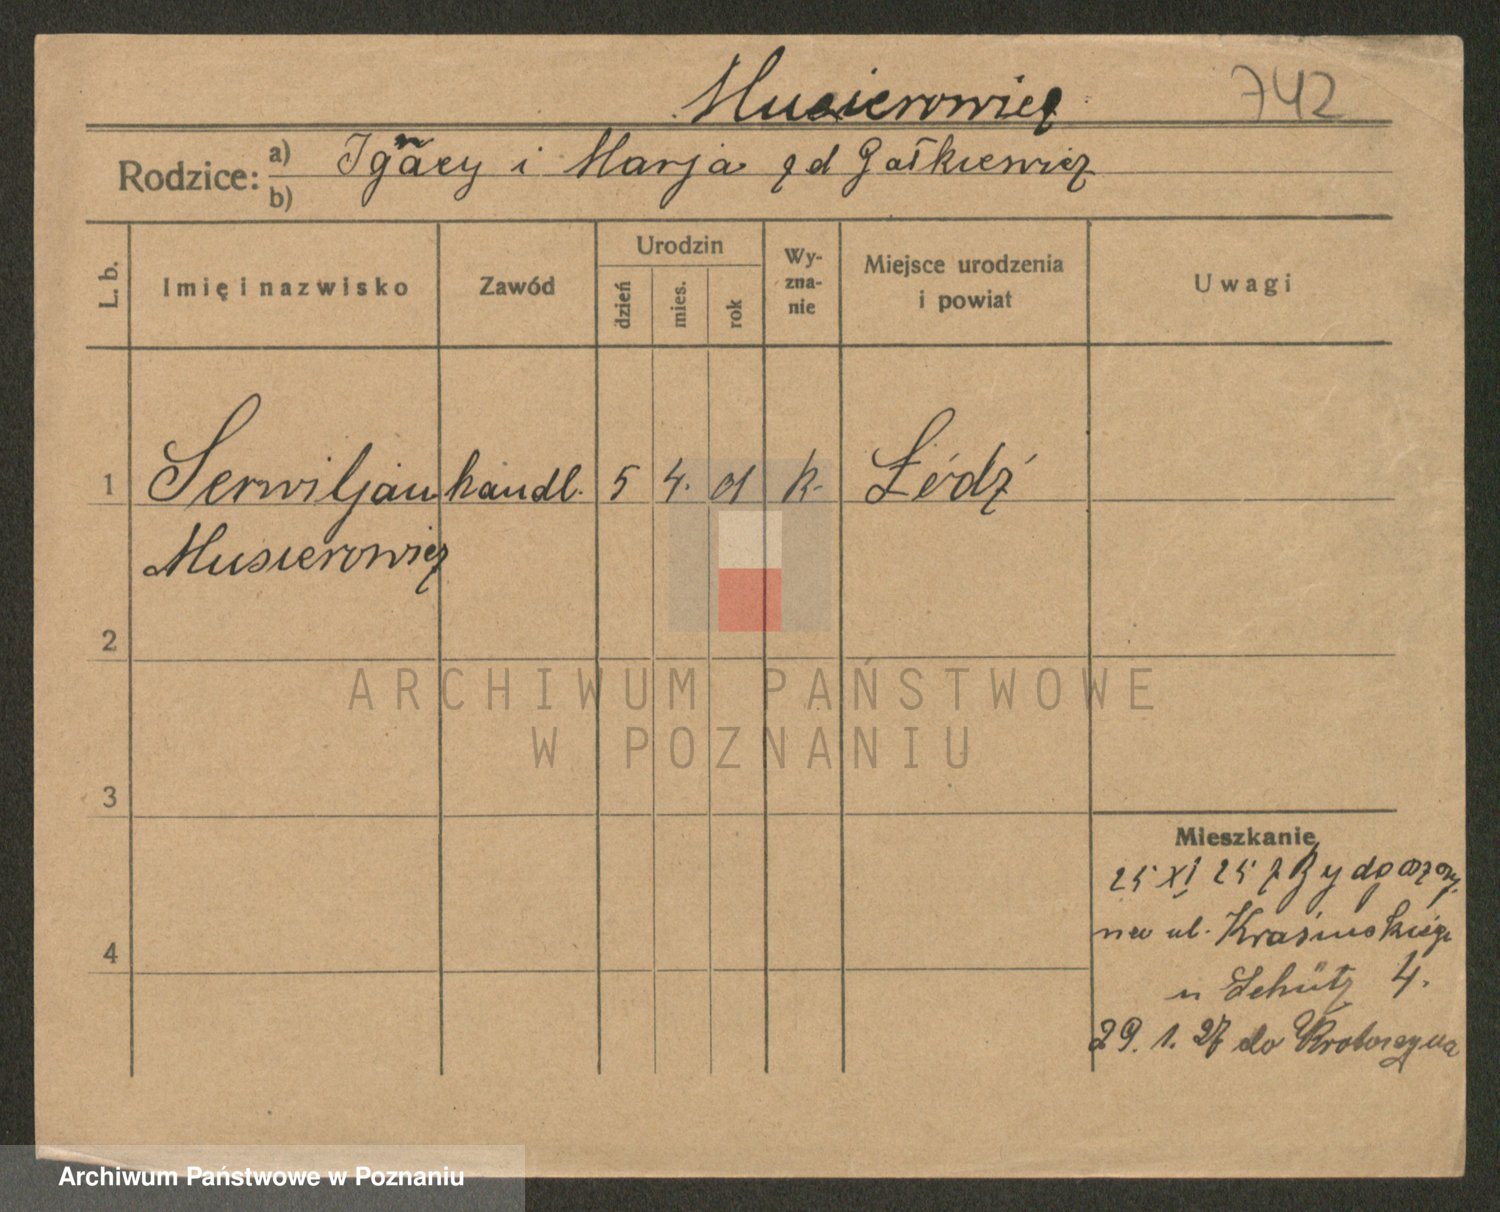 Musierowicz
742
Rodzice: a) Ignacy i Marja zd Gałkiewicz
b)
L. b.
Imię i nazwisko
Zawód
Urodzin
dzień
mies.
rok
Wy-
zna-
nie
Miejsce urodzenia
i powiat
Uwagi
1 Serwiljan handl. 5 4. 01 k. Łódź
Musierowicz
2
ARCHIWUM PAŃSTWOWE
W POZNANIU
3
Mieszkanie
25 XI 25 z Bydgoszczy
na ul. Krasińskiego
u Schütz 4.
4
29. 1. 27 do Krotoszyna
Archiwum Państwowe w Poznaniu